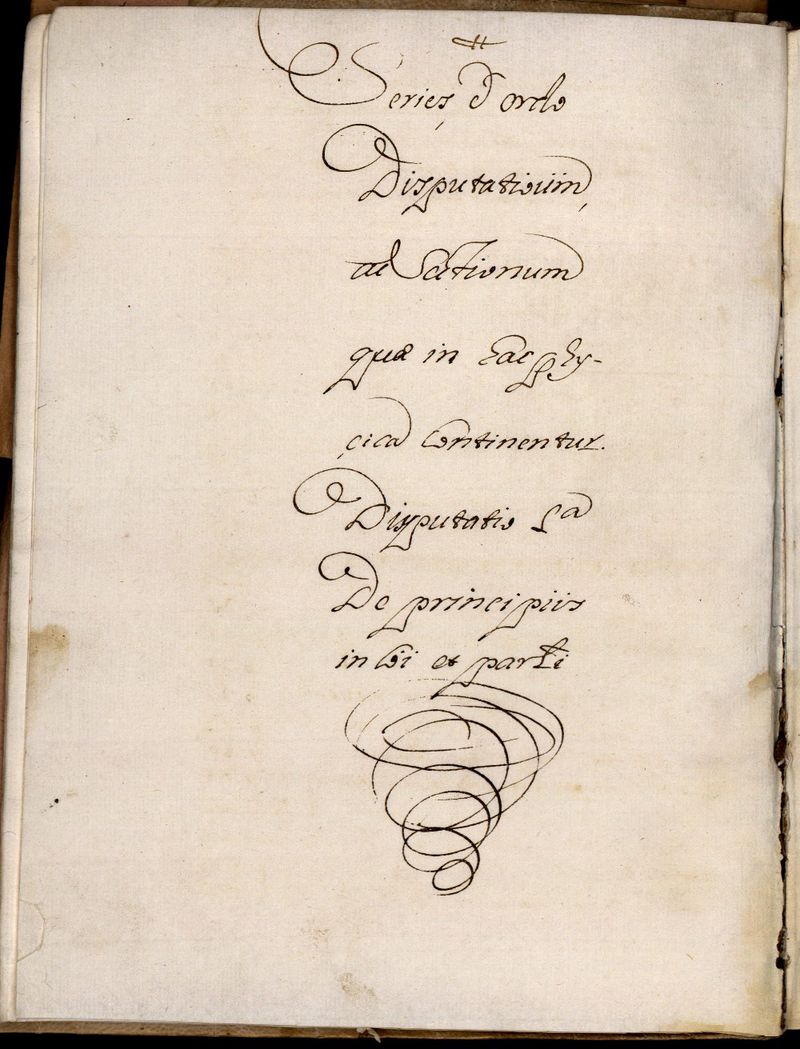 Series & ordo
Disputationum
ac Sectionum
quæ in hac Phy-
çica Continentur.
Disputatio 1ª
De principiis
in Cõi et parti